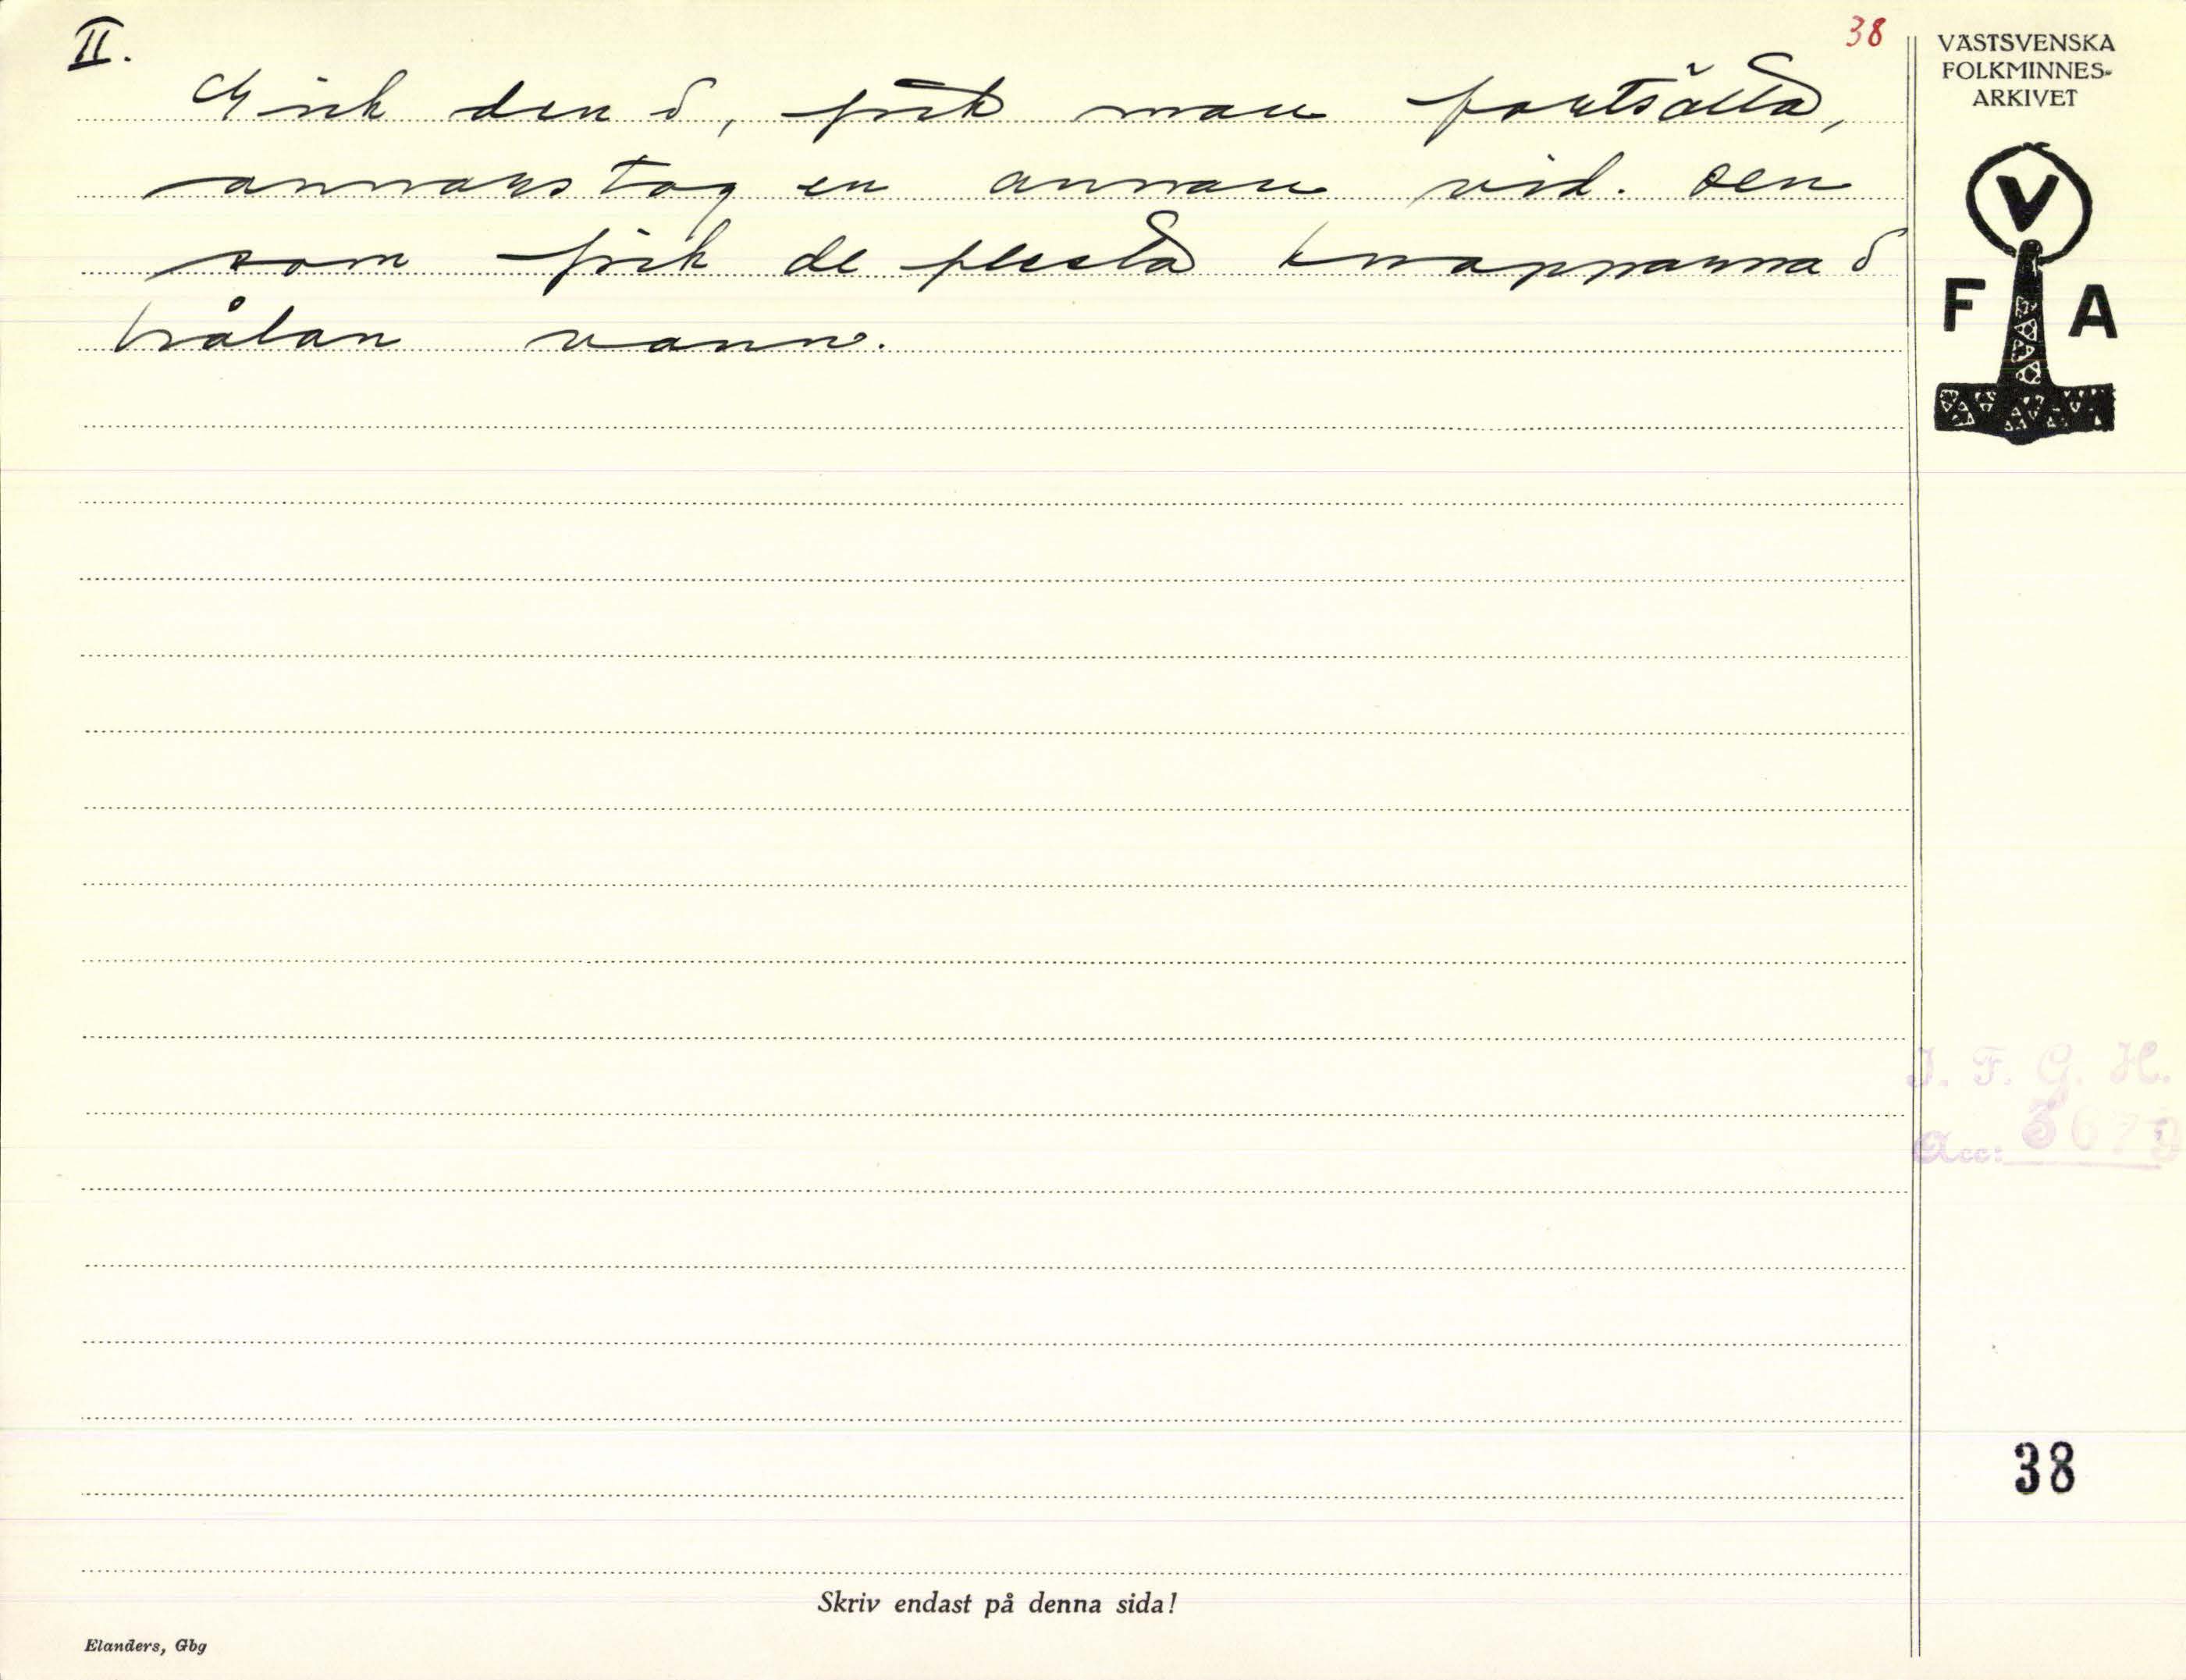 II.
38
Gick den i, fick man fortsätta,
annars tog en annan vid. Den
som fick de flesta knapparna i
hålan vann.
VÄSTSVENSKA
FOLKMINNES-
ARKIVET
V
F A
I. F. G. H.
Acc: 3679
38
Skriv endast på denna sida!
Elanders, Gbg